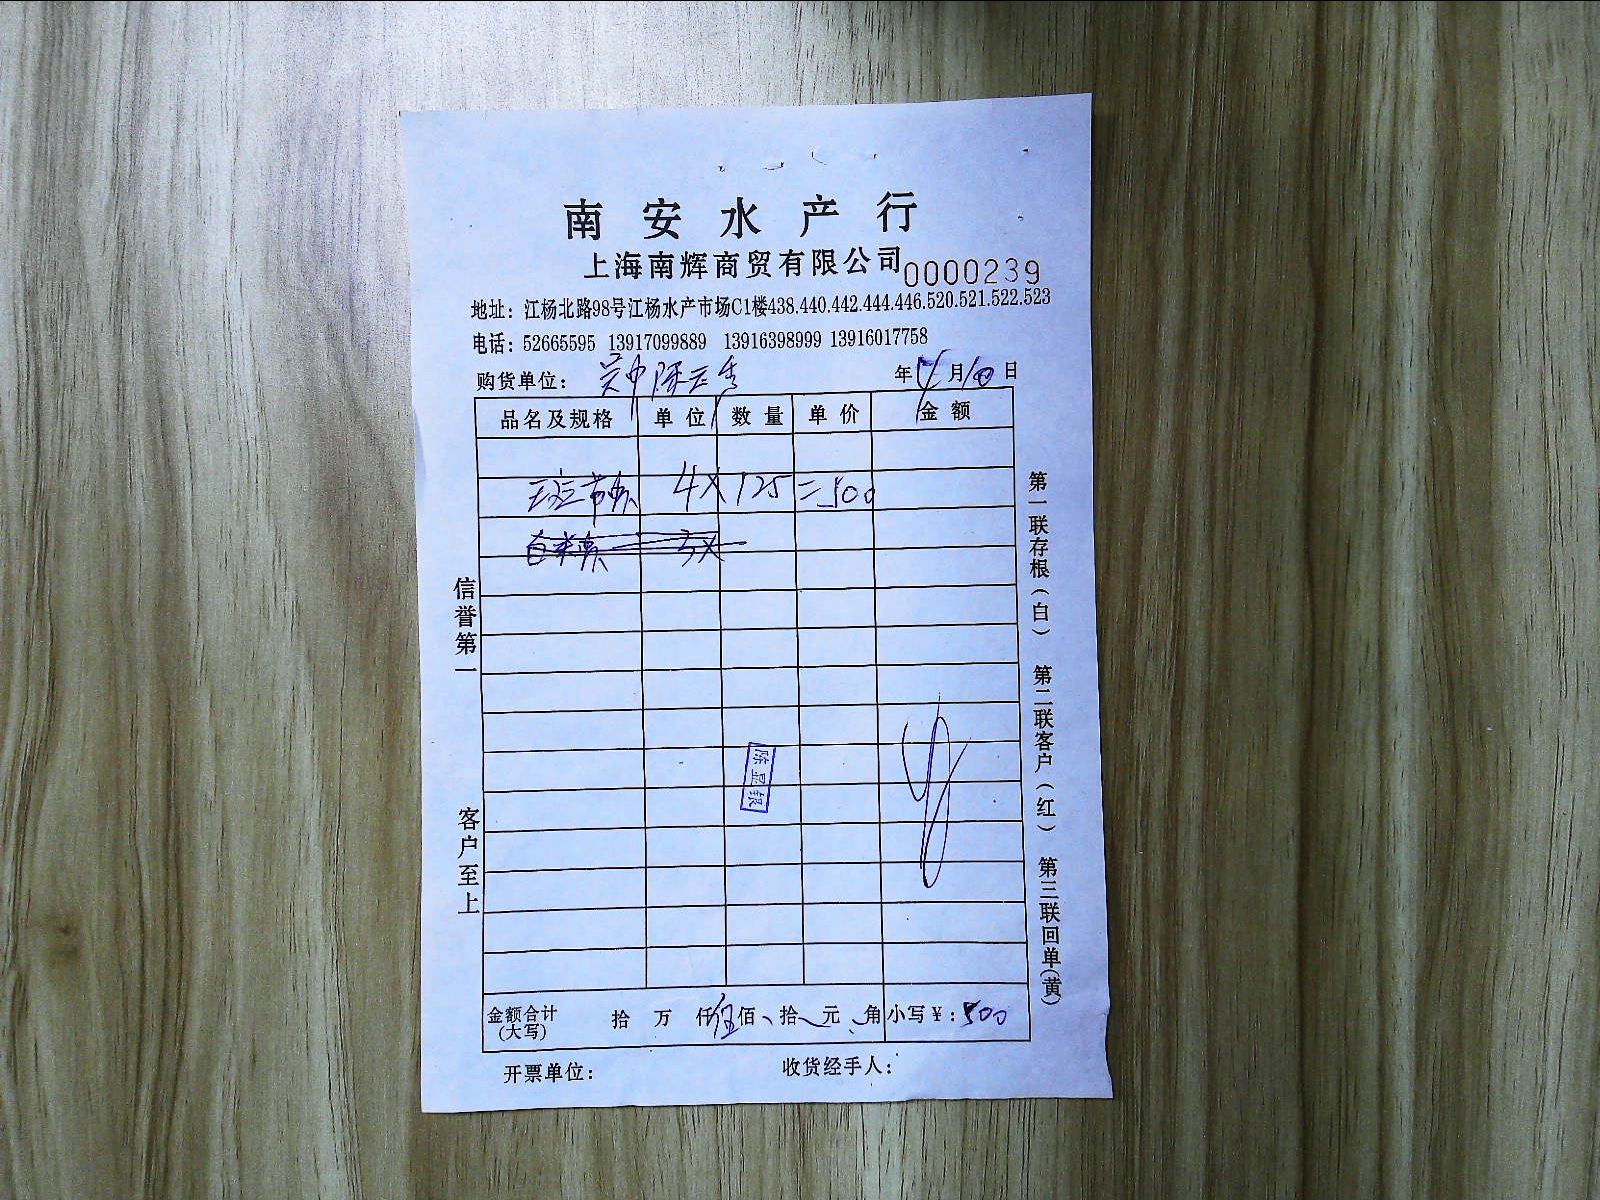 南安水产行
上海南辉商贸有限公司 0000239
地址：江杨北路98号江杨水产市场C1楼438.440.442.444.446.520.521.522.523
电话：52665595 13917099889 13916398999 13916017758
购货单位： 年 月10日
品名及规格 单位 数量 单价 金额
4X 125 = 500
3X
信誉第一
客户至上
第一联存根（白） 第二联客户（红） 第三联回单（黄）
陈显银
金额合计（大写） 拾 万 仟伍佰 拾 元 角 小写￥：500
开票单位： 收货经手人：